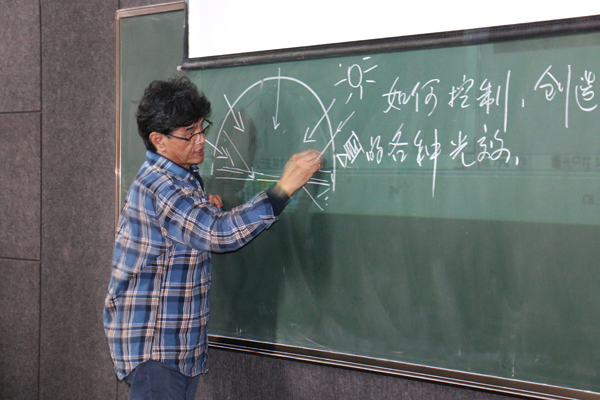 如何控制、创造
的各种光效、